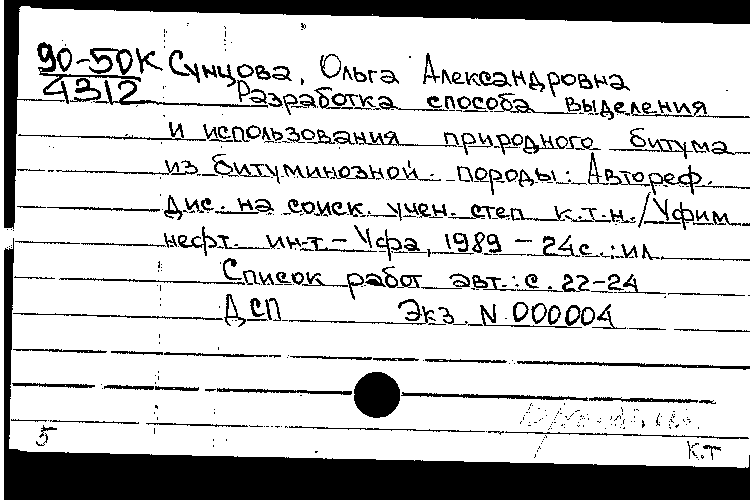 90-50К Сунцова, Ольга Александровна
4312 Разработка способа выделения
и использования природного битума
из битуминозной породы: Автореф.
дис. на соиск. учен. степ к.т.н./Уфим
нефт. ин-т.- Уфа, 1989 - 24с.:ил.
Список работ авт.: с. 22-24
ДСП Экз. N 000004
5
К.Т